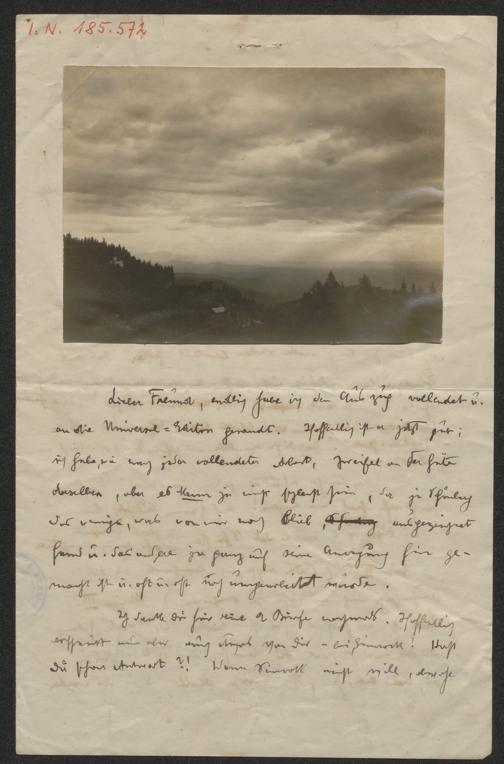 I. N. 185.572
Lieber Freund, endlich habe ich den Auszug vollendet u.
an die Universal=Edition gesandt. Hoffentlich ist er jetzt gut;
ich habe, wie nach jeder vollendeten Arbeit, Zweifel an der Güte
derselben, aber es kann ja nicht schlecht sein, da ja Schönberg
das wenige, was von mir noch blieb, ausgezeichnet
fand u. das andere ja ganz auf seine Anregung hin ge-
macht ist u. oft u. oft noch umgearbeitet wurde.
Ich danke dir für deine 2 Briefe nochmals. Hoffentlich
erscheint nun aber auch etwas von dir - bei Simrock! Hast
du schon Antwort?! Wenn Simrock nicht will,